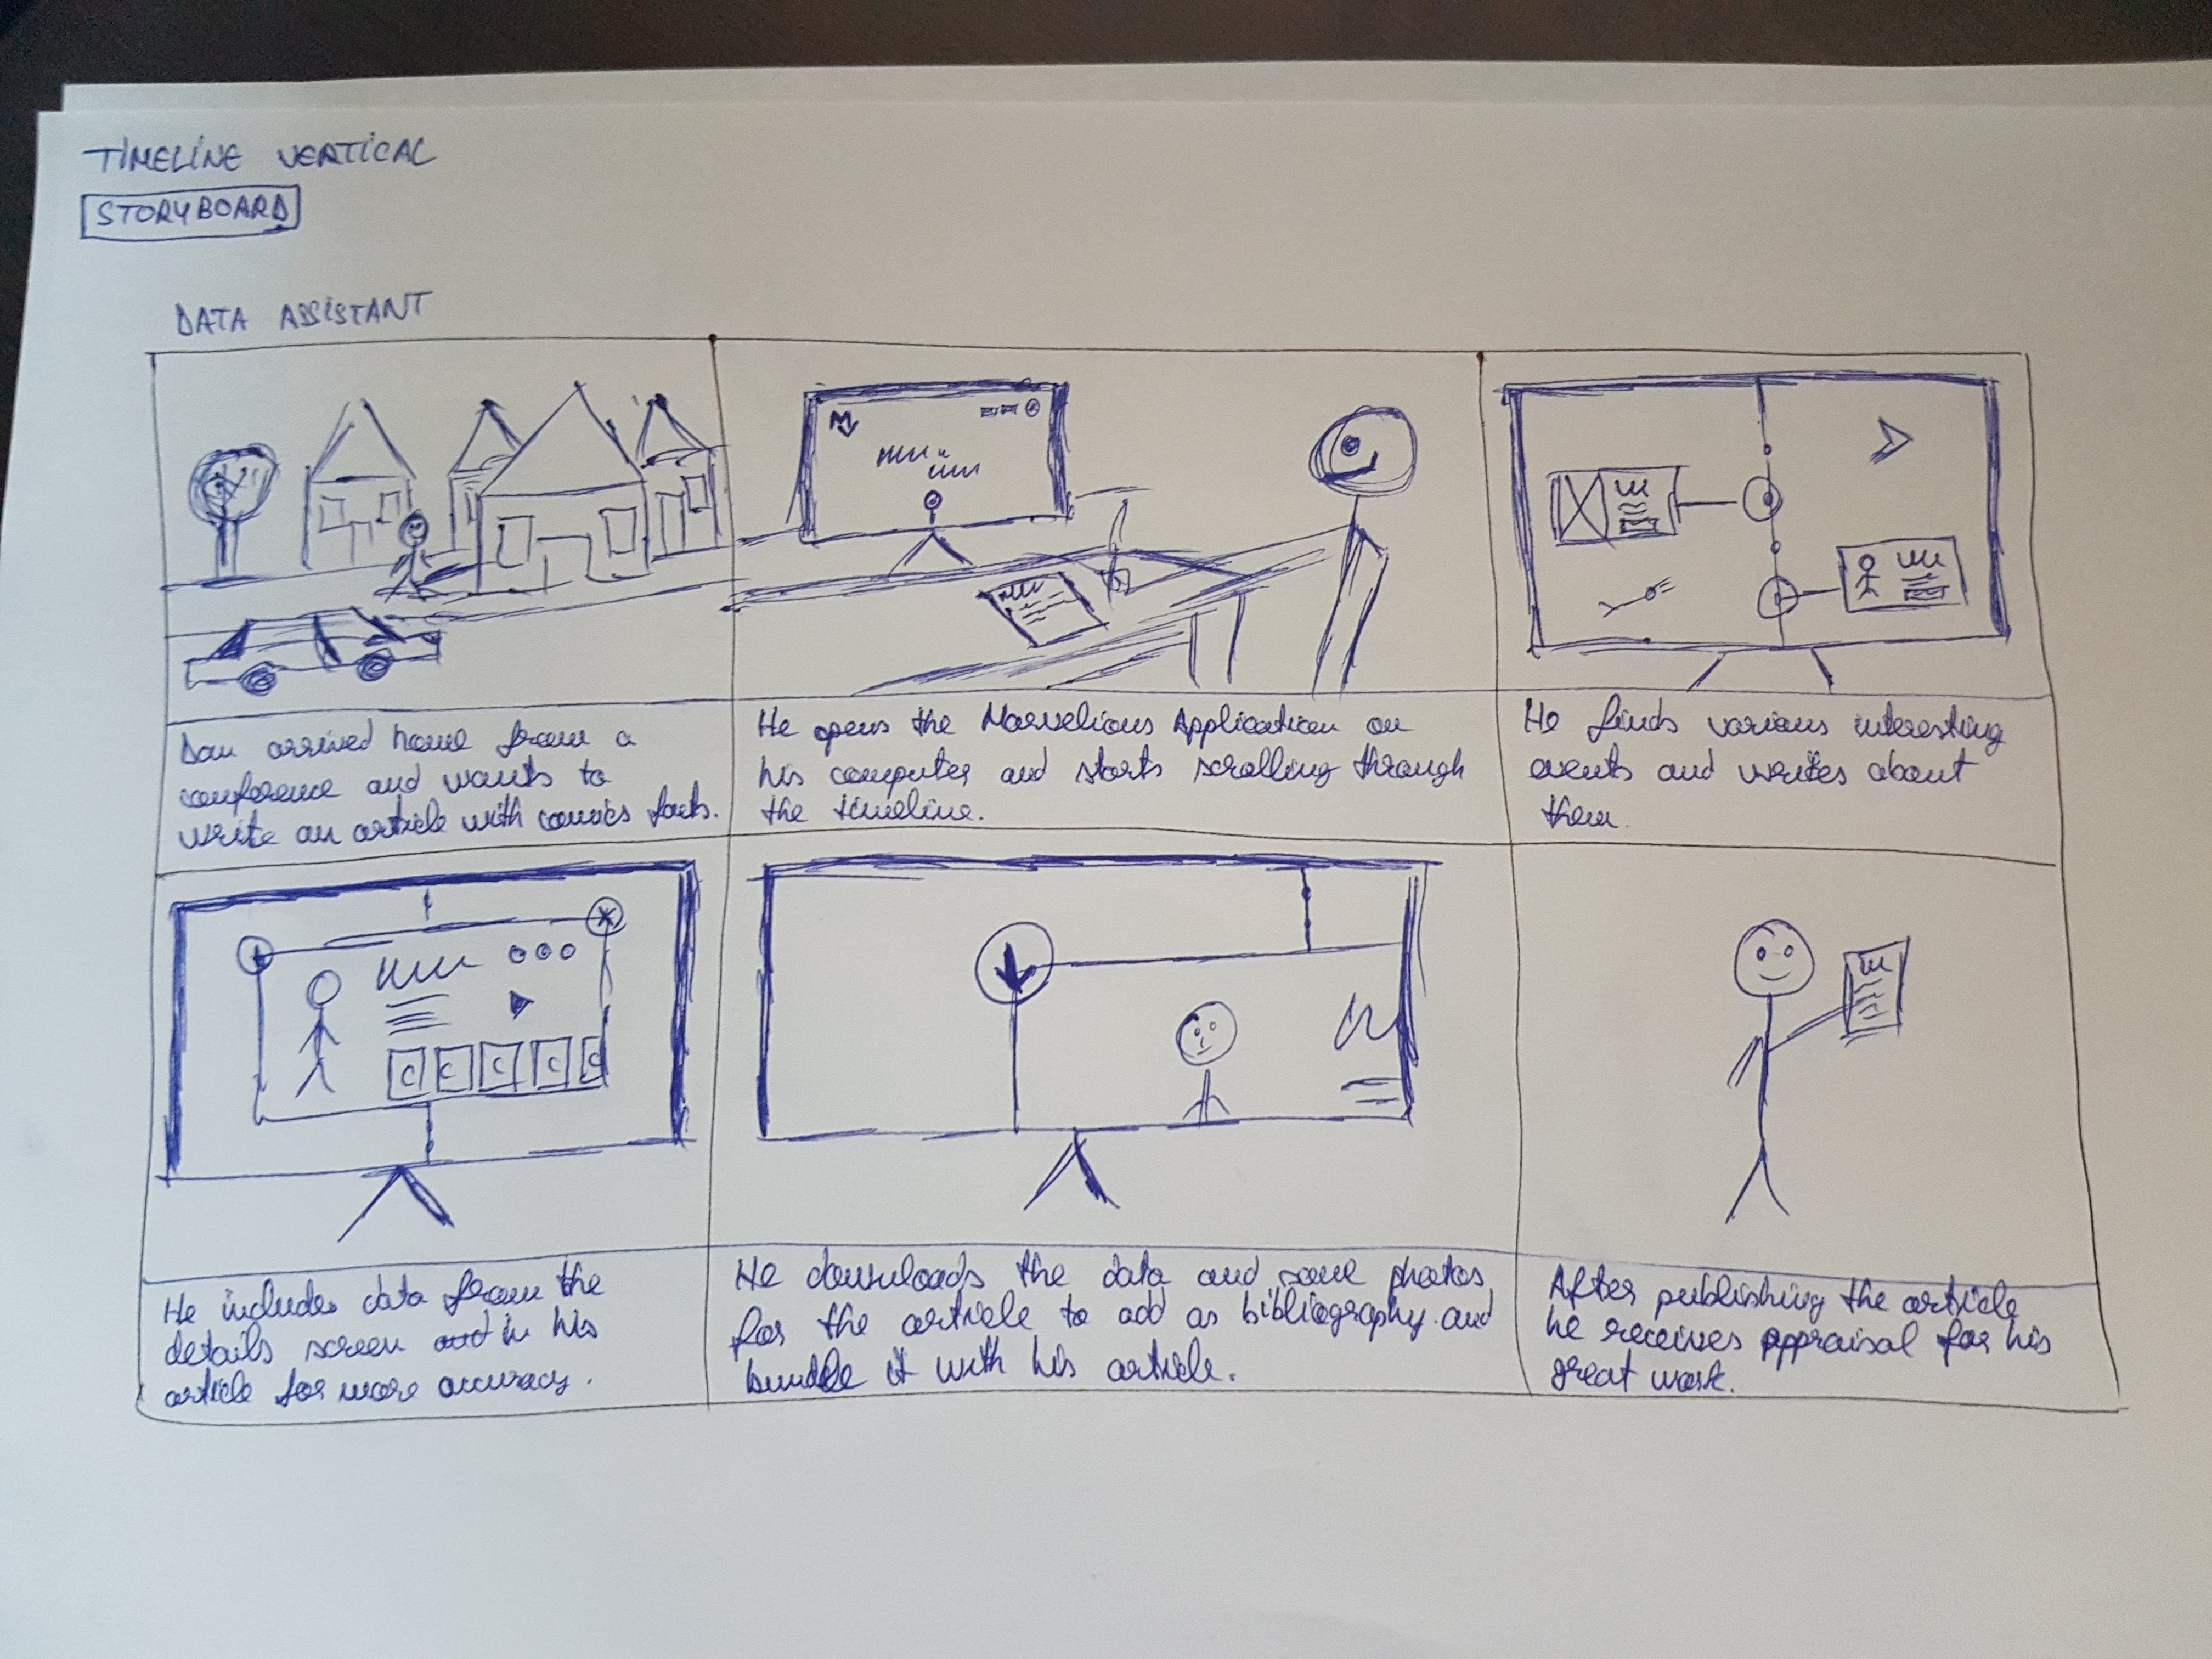 TIMELINE VERTICAL
STORYBOARD
DATA ASSISTANT
Dan arrived home from a
conference and wants to
write an article with comics facts.
He opens the Marvelious Application on
his computer and starts scrolling through
the timeline.
He finds various interesting
events and writes about
them.
He includes data from the
details screen and in his
article for more accuracy.
He downloads the data and some photos
for the article to add as bibliography and
bundle it with his article.
After publishing the article
he receives appraisal for his
great work.